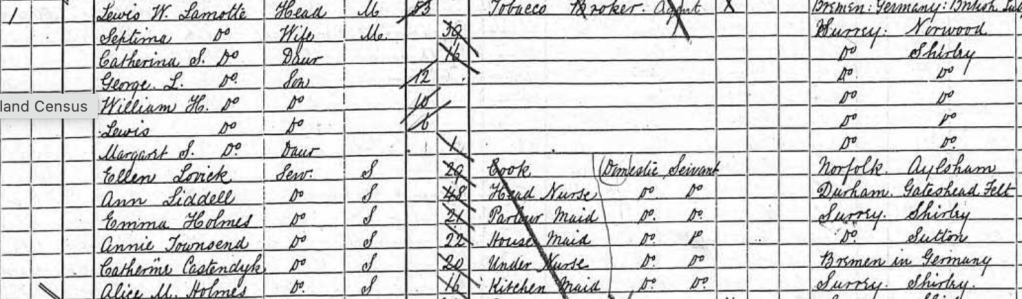 1 Lewis W. Lamotte Head M 53 Tobacco Broker Agent X Bremen: Germany: British
Septima Do Wife M. 39 Surrey: Norwood
Catherina S. Do Daur 16 Do Shirley
George L. Do. Son 12 Do Do
land Census William H. Do Do 10 Do Do
Lewis Do Do 6 Do Do
Margaret S. Do. Daur 1 Do Do
Ellen Lovick Serv. S 29 Cook (Domestic Servant Norfolk Aylsham
Ann Liddell Do S 48 Head Nurse Do Do Durham. Gateshead Fell
Emma Holmes Do S 21 Parlour Maid Do Do. Surrey. Shirley
Annie Townsend Do S 22 House Maid Do. Do Do. Sutton
Catherine Castendyk Do S 20 Under Nurse Do Do Bremen in Germany
Alice M. Holmes Do S 16 Kitchen Maid Do Do. Surrey. Shirley.